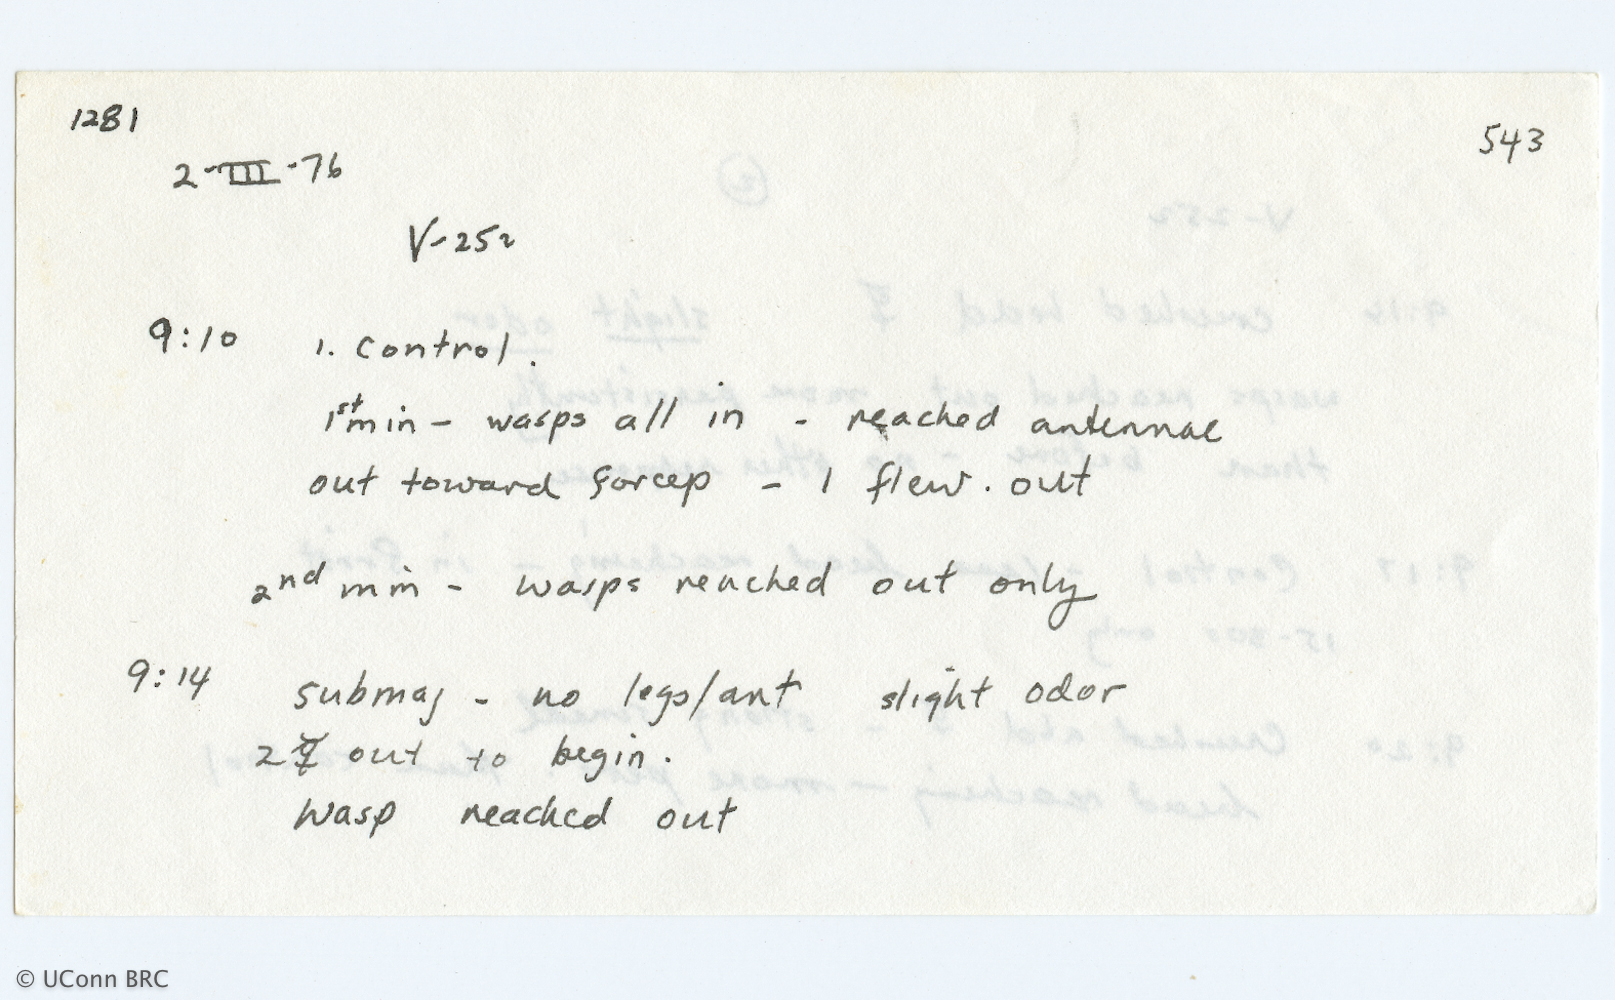 1281
543
2-III-76
V-252
9:10 1. control.
1st min - wasps all in - reached antennae
out toward forcep - 1 flew. out
2nd min - wasps reached out only
9:14 submaj - no legs/ant slight odor
2 ☿ out to begin.
wasp reached out
© UConn BRC